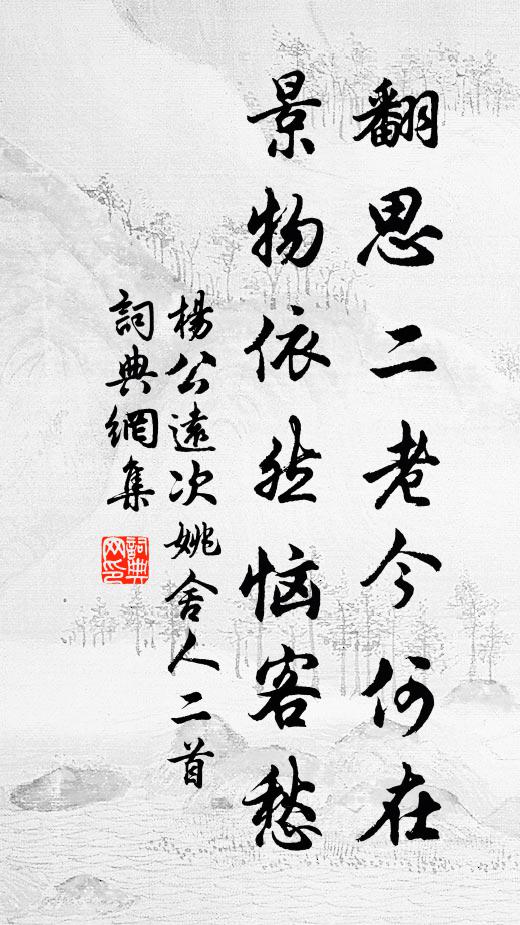 翻思二老今何在
景物依然恼客愁
楊公遠次姚舍人二首
詞典網集
詞典网印